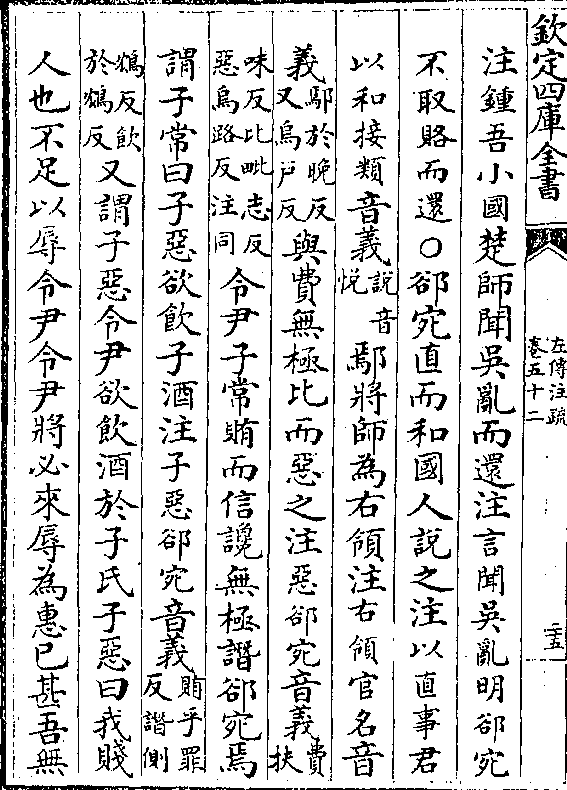 欽定四庫全書
左傳注疏
卷五十二
二五
注鍾吾小國楚師聞吳亂而還注言聞吳亂明郤宛
不取賂而還○郤宛直而和國人說之注以直事君
以和接類音義說音悅鄢將師為右領注右領官名音
義鄢於晚反又烏戸反與費無極比而惡之注惡郤宛音義費扶
味反比毗志反惡烏路反注同令尹子常賄而信讒無極譖郤宛焉
謂子常曰子惡欲飲子酒注子惡郤宛音義賄乎罪反譖側
鴆反飲於鴆反又謂子惡令尹欲飲酒於子氏子惡曰我賤
人也不足以辱令尹令尹將必來辱為惠已甚吾無